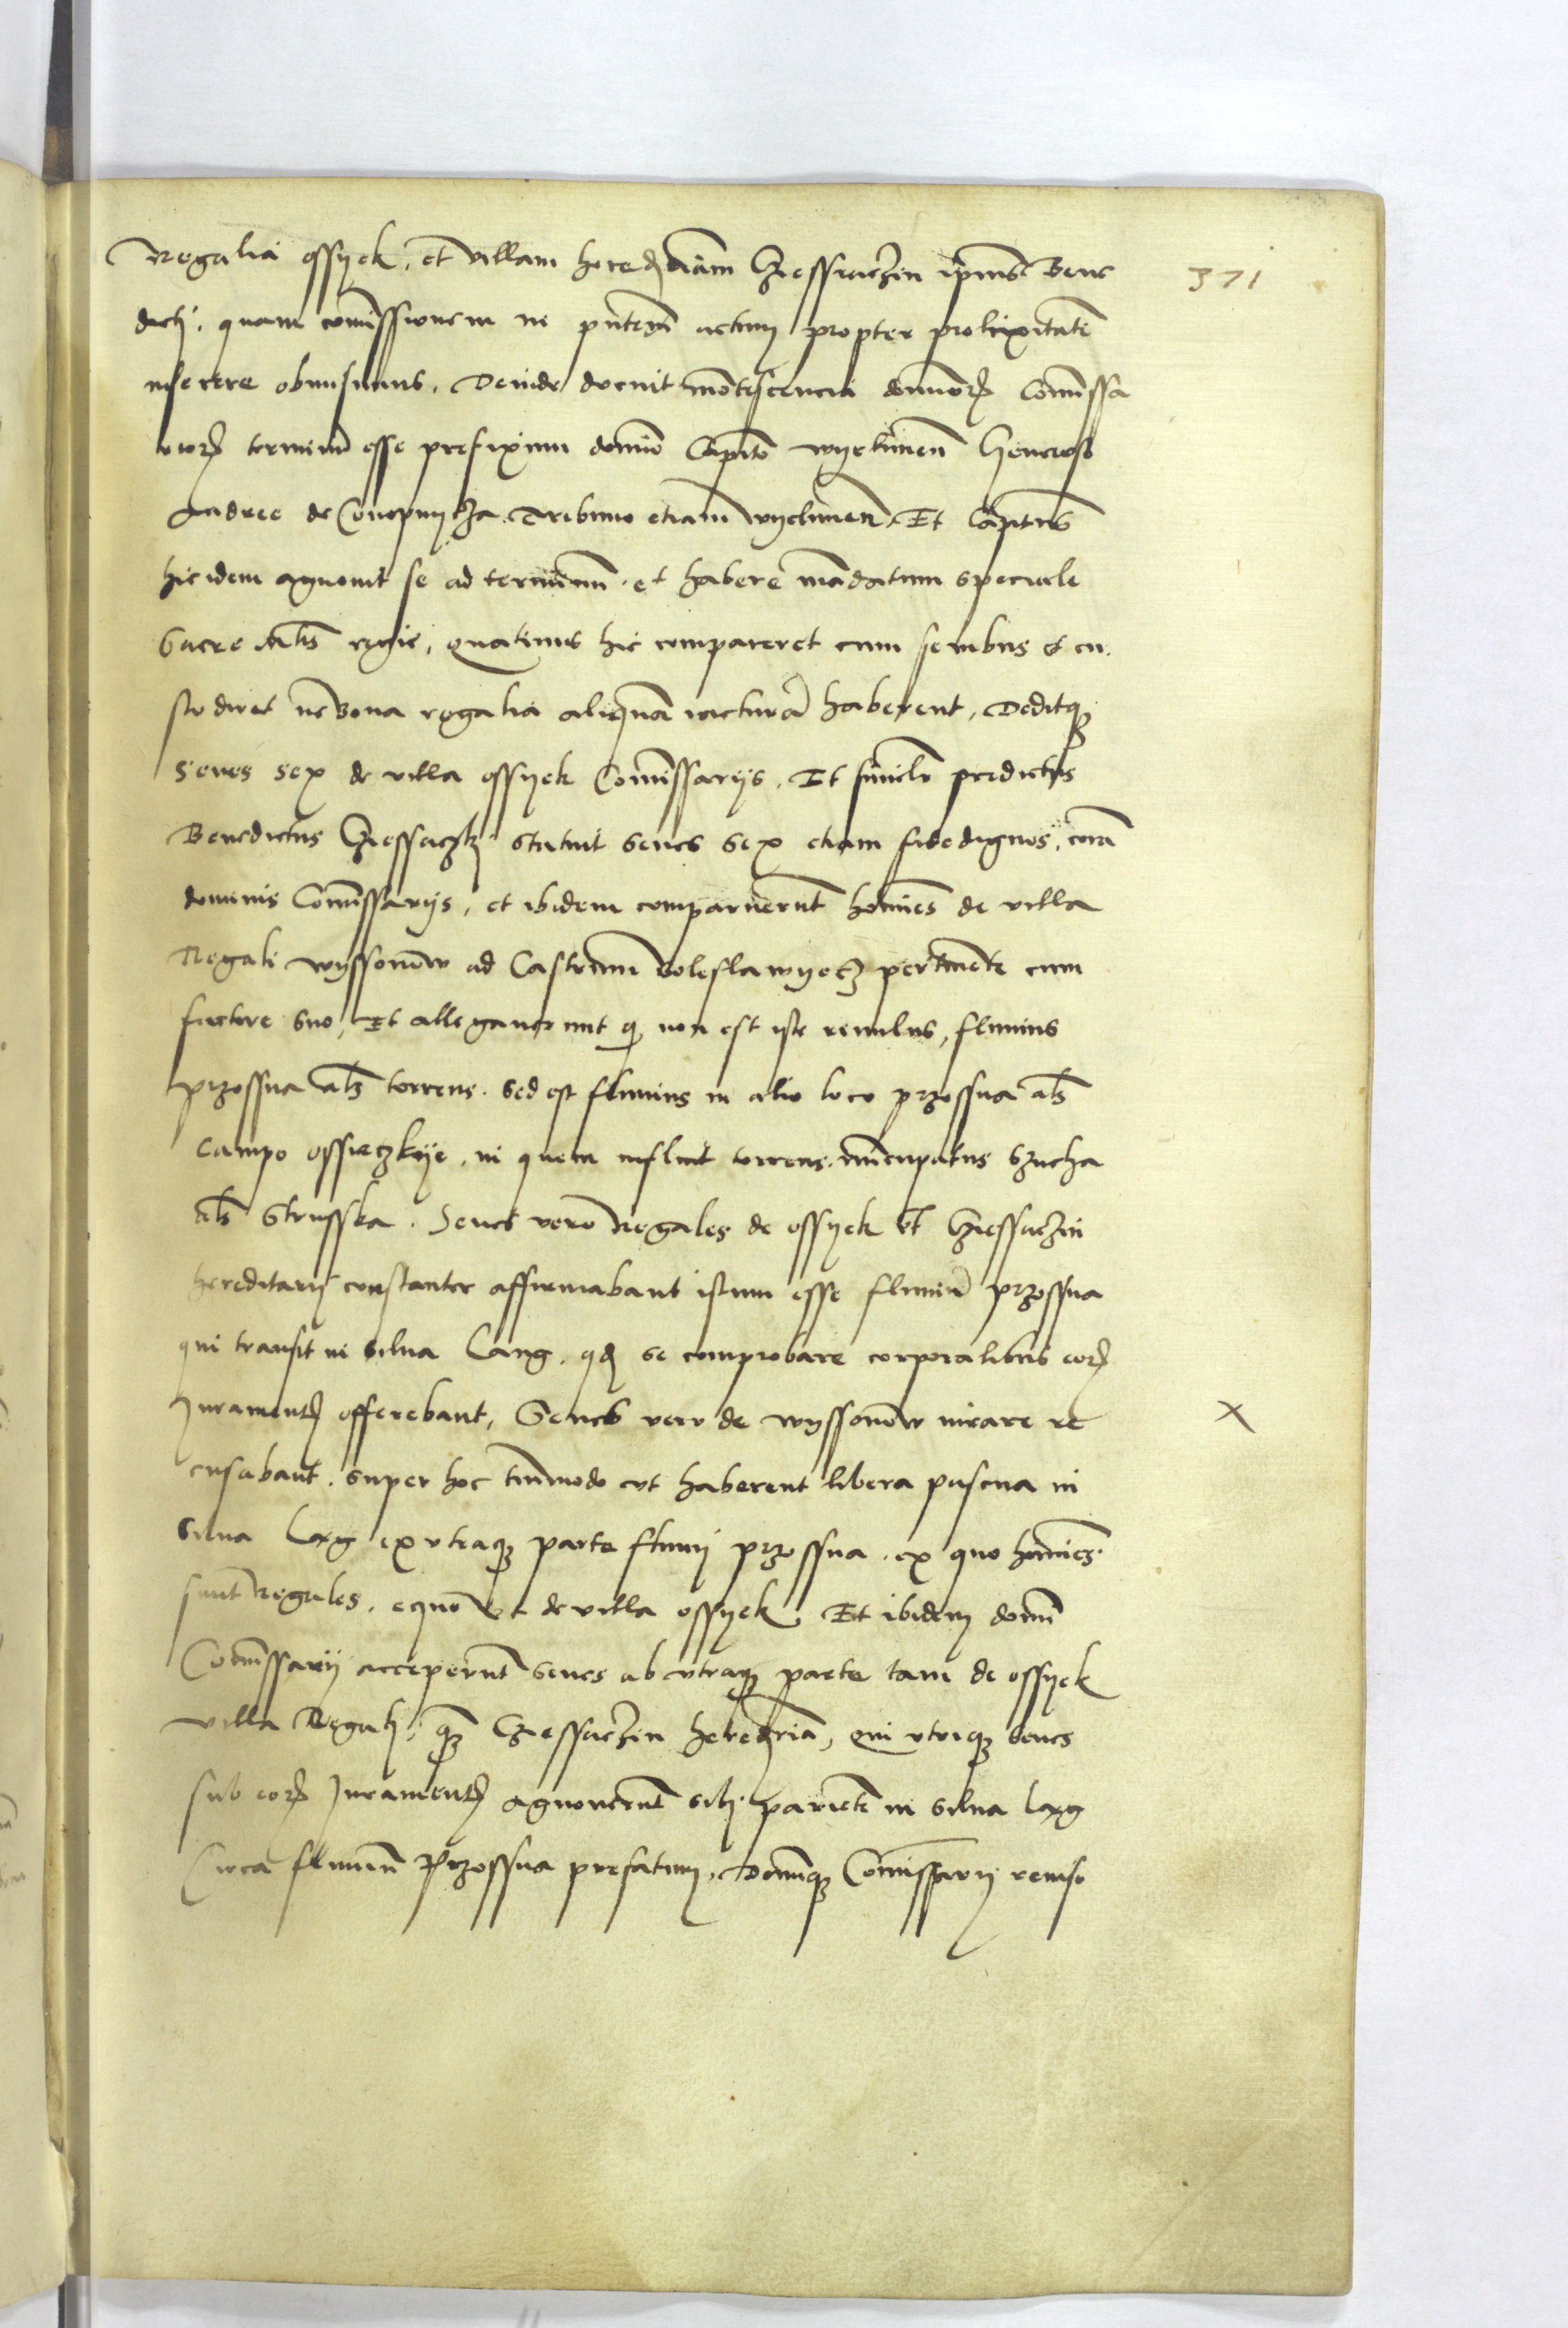 Regalia ossyek, et villam hereditariam Czessaczin ipius Bene
dicti, quam comissionem in pntem actum propter prolixitate
inserere obmisimus. Deinde docuit dominorum Comissa
riorum terminum esse prefixum domino Capto wyelunen Generoso
Andree de Conopnycza Tribuno etiam wyelunen, Et Captus
hic idem agnovit se ad terminum et habere mandatum speciale
Sacre Mtis regie, quatinus hic compareret cum senibus et cu
stodiret ne bona regalia aliquam iacturam haberent, Deditque
senes sex de villa ossyek Comissarijs. Et similr predictus
Benedictus Czessaczky statuit senes sex etiam fidedignos, coram
dominis Comissarijs, et ibidem comparuerunt homines de villa
Regali wyssonow ad Castrum boleslawyecz pertinente cum
factore suo, Et allegaverunt quod non est iste rivulus, fluvius
przossna als torrens. Sed est fluvius in alio loco przossna als
campo ossieczkye, in quem influit torrens nuncupatus Szucha
als Strusska. Senes vero Regales de ossyek et Czessaczin
hereditarij constanter affirmabant istum esse fluvium przossna
qui transit in silva Lang, quod se comprobare corporalibus eorum
Juramentis offerebant, Senes vero de wyssonow iurare re
cusabant. super hoc tantummodo ut haberent libera pascua in
silva Lag ex utraque parte fluvij przossna, ex quo homines
sunt Regales, eque ut de villa ossyek, Et ibidem domini
Comissarij acceperunt senes ab utraque parte tam de ossyek
villa Regali, quam Czessaczin hereditaria, qui utrique senes
sub eorum Juramentis agnoverunt sibi parietem in silva Lag
Circa fluvium Przossna prefatum, dominique Comissarij reviso
371
x